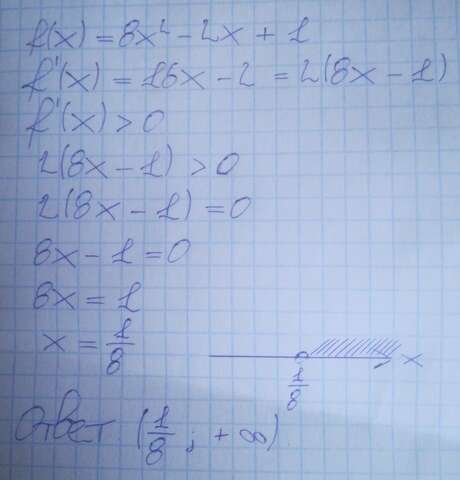 f(x) = 8x² - 2x + 1
f'(x) = 16x - 2 = 2(8x - 1)
f'(x) > 0
2(8x - 1) > 0
2(8x - 1) = 0
8x - 1 = 0
8x = 1
x = 1/8
x
1/8
Ответ (1/8 ; +∞)